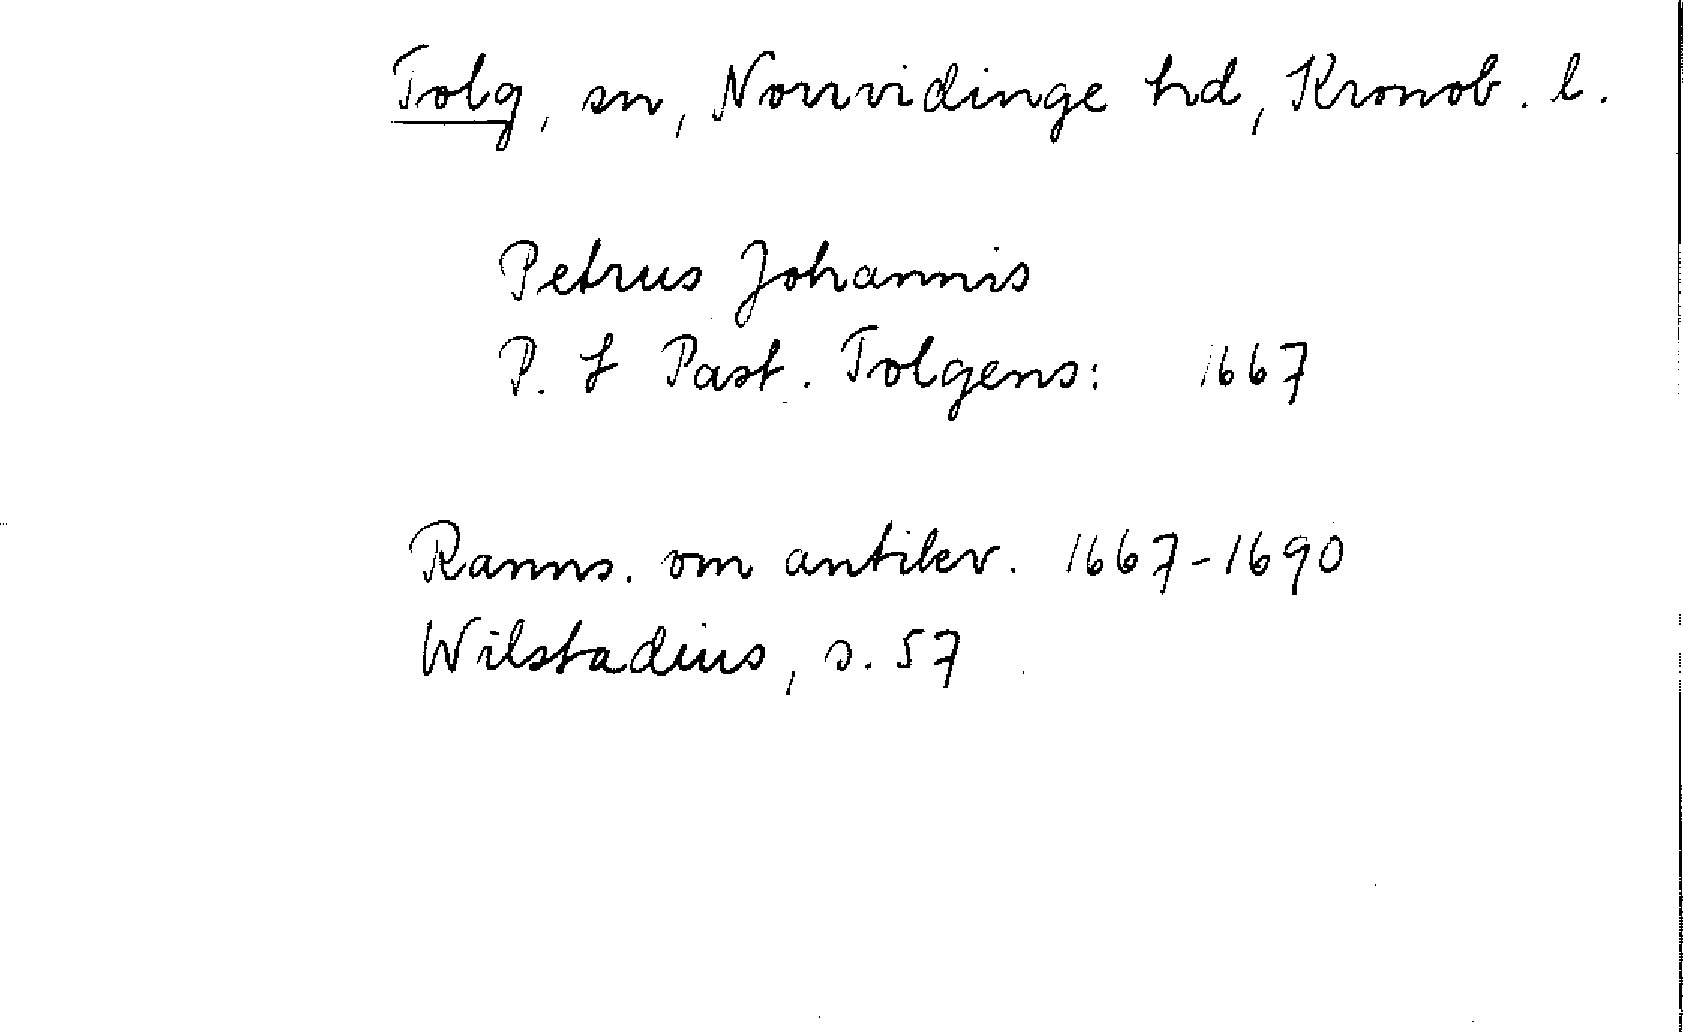 Tolg, sn, Norrvidinge hd, Kronob. l.
Petrus Johannis
P. L Past. Tolgens: 1667
Ranns. om antikv. 1667-1690
Wilstadius, s. 57